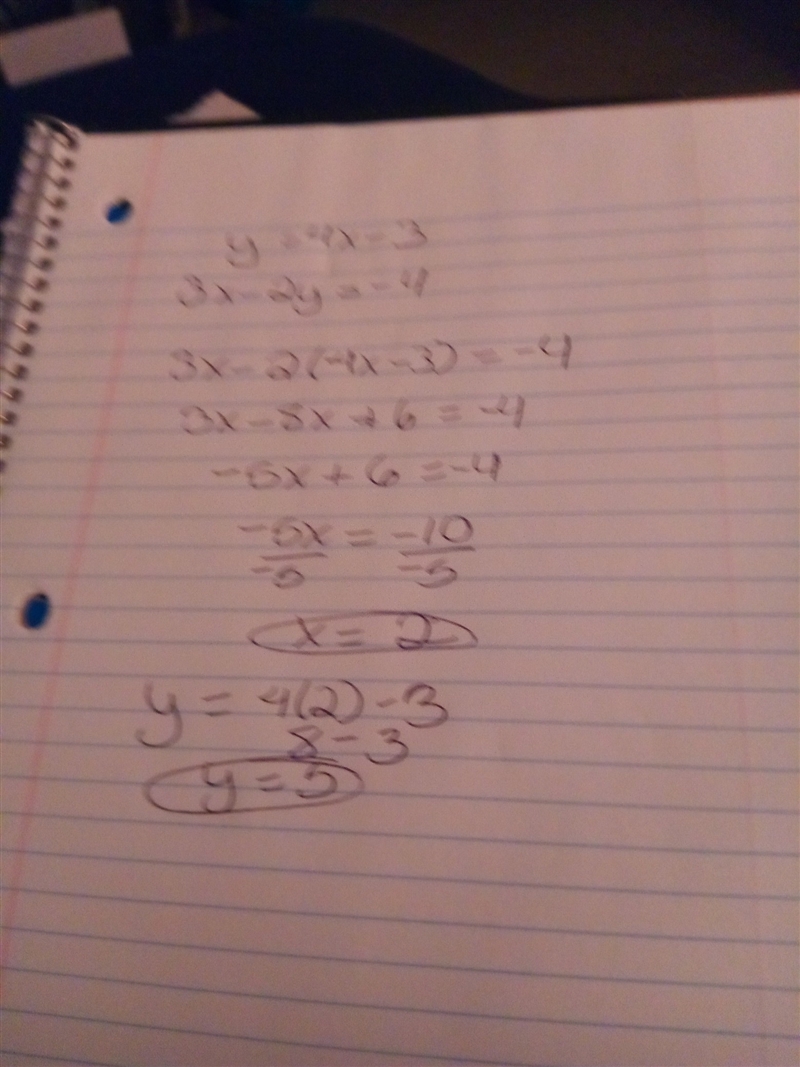 y = 4x - 3
3x - 2y = -4
3x - 2(4x - 3) = -4
3x - 8x + 6 = -4
-5x + 6 = -4
-5x = -10
-5 -5
x = 2
y = 4(2) - 3
8 - 3
y = 5